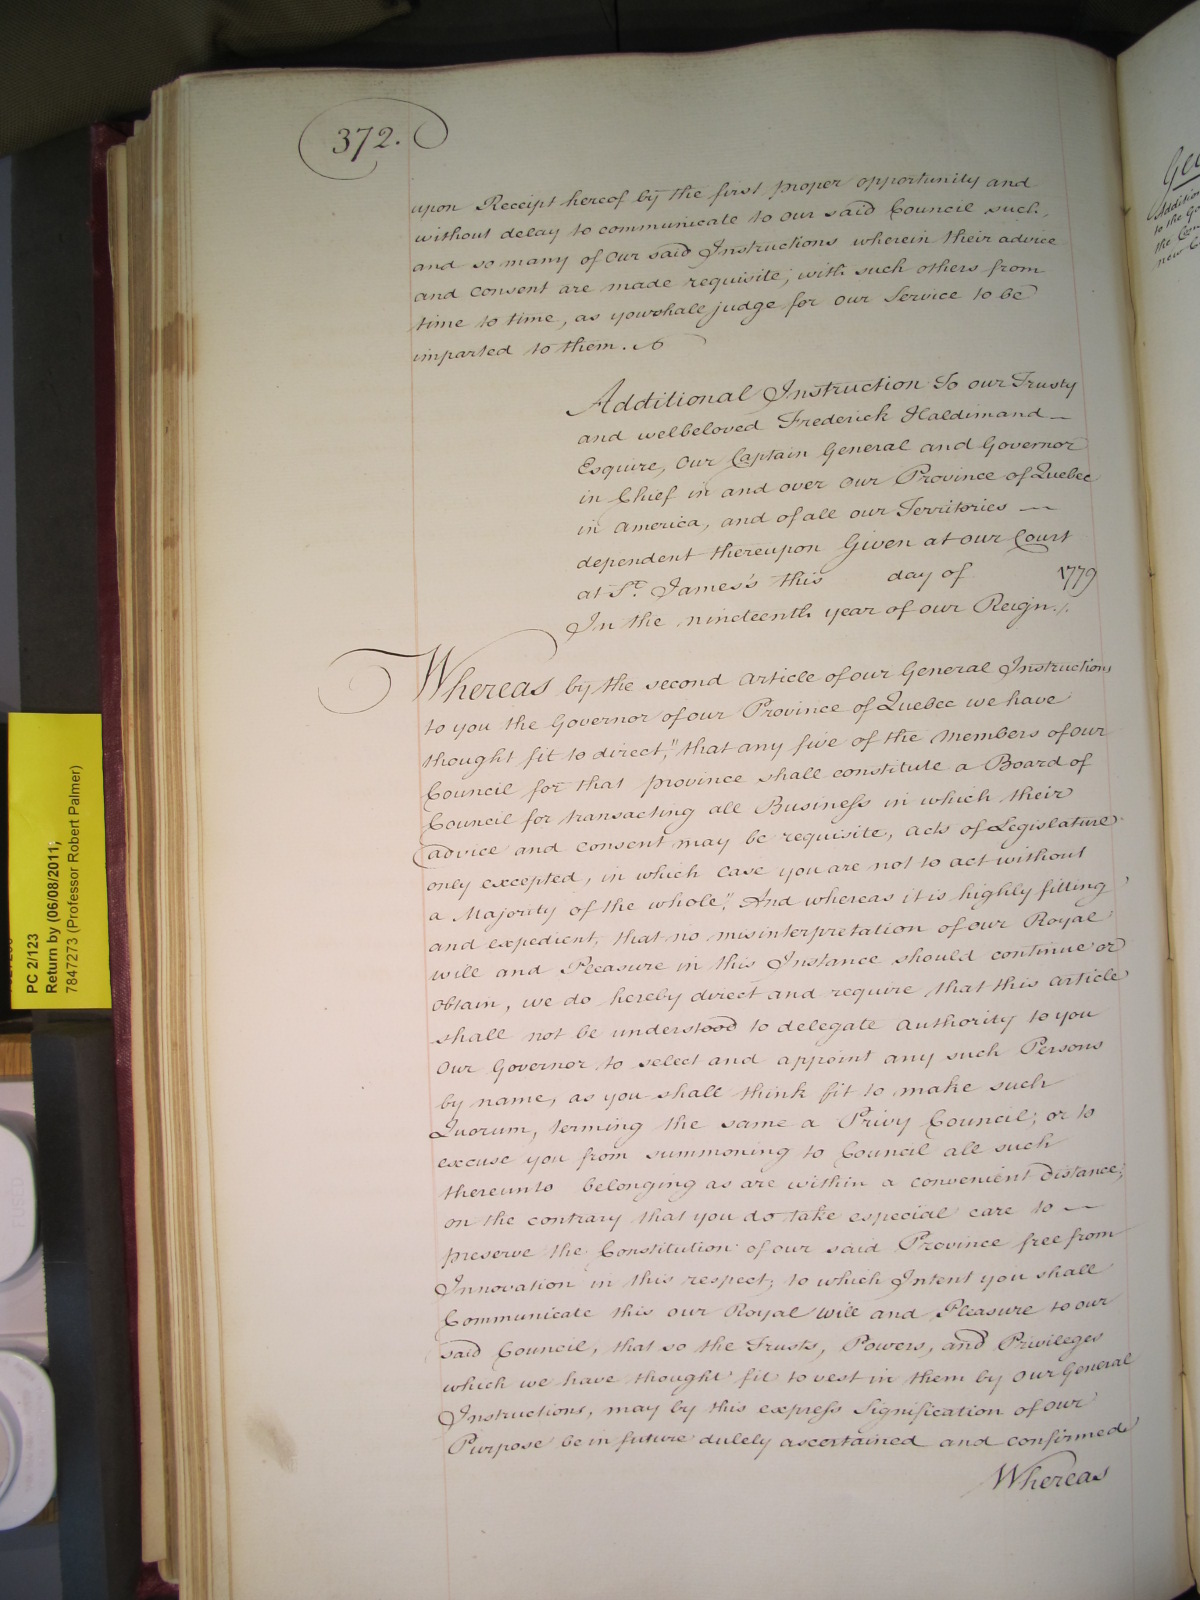 372.
upon Receipt hereof by the first proper opportunity and
without delay to communicate to our said Council such,
and so many of Our said Instructions wherein their advice
and consent are made requisite, with such others from
time to time, as you shall judge for our Service to be
imparted to them.
Additional Instruction To our Trusty
and welbeloved Frederick Haldimand
Esquire, Our Captain General and Governor
in Chief in and over Our Province of Quebec
in America, and of all our Territories
dependent thereupon Given at our Court
at St. James's this day of 1779
In the nineteenth year of our Reign.
Whereas by the second Article of our General Instructions
to you the Governor of our Province of Quebec we have
thought fit to direct, "that any five of the Members of our
Council for that province shall constitute a Board of
Council for transacting all Business in which their
advice and consent may be requisite, Acts of Legislature
only excepted, in which Case you are not to act without
a Majority of the whole." And whereas it is highly fitting
and expedient, that no misinterpretation of our Royal
will and Pleasure in this Instance should continue or
obtain, we do hereby direct and require that this article
shall not be understood to delegate authority to you
Our Governor to select and appoint any such Persons
by name, as you shall think fit to make such
Quorum, terming the same a Privy Council; or to
excuse you from summoning to Council all such
thereunto belonging as are within a convenient Distance;
on the contrary that you do take especial care to
preserve the Constitution of our said Province free from
Innovation in this respect; to which Intent you shall
Communicate this our Royal will and Pleasure to our
said Council, that so the Trusts, Powers, and Privileges
which we have thought fit to vest in them by Our General
Instructions, may by this express Signification of Our
Purpose be in future dulely ascertained and confirmed
Whereas
PC 2/123
Return by (06/08/2011;
7847273 (Professor Robert Palmer)